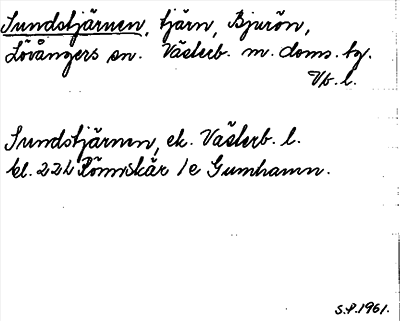 Sundstjärnen, tjärn, Bjurön,
Lövångers sn. Västerb. m. doms. tg.
Vb. l.
Sundstjärnen, ek. Västerb. l.
bl. 22L Rönnskär 1e Gumhamn.
S.P. 1961.